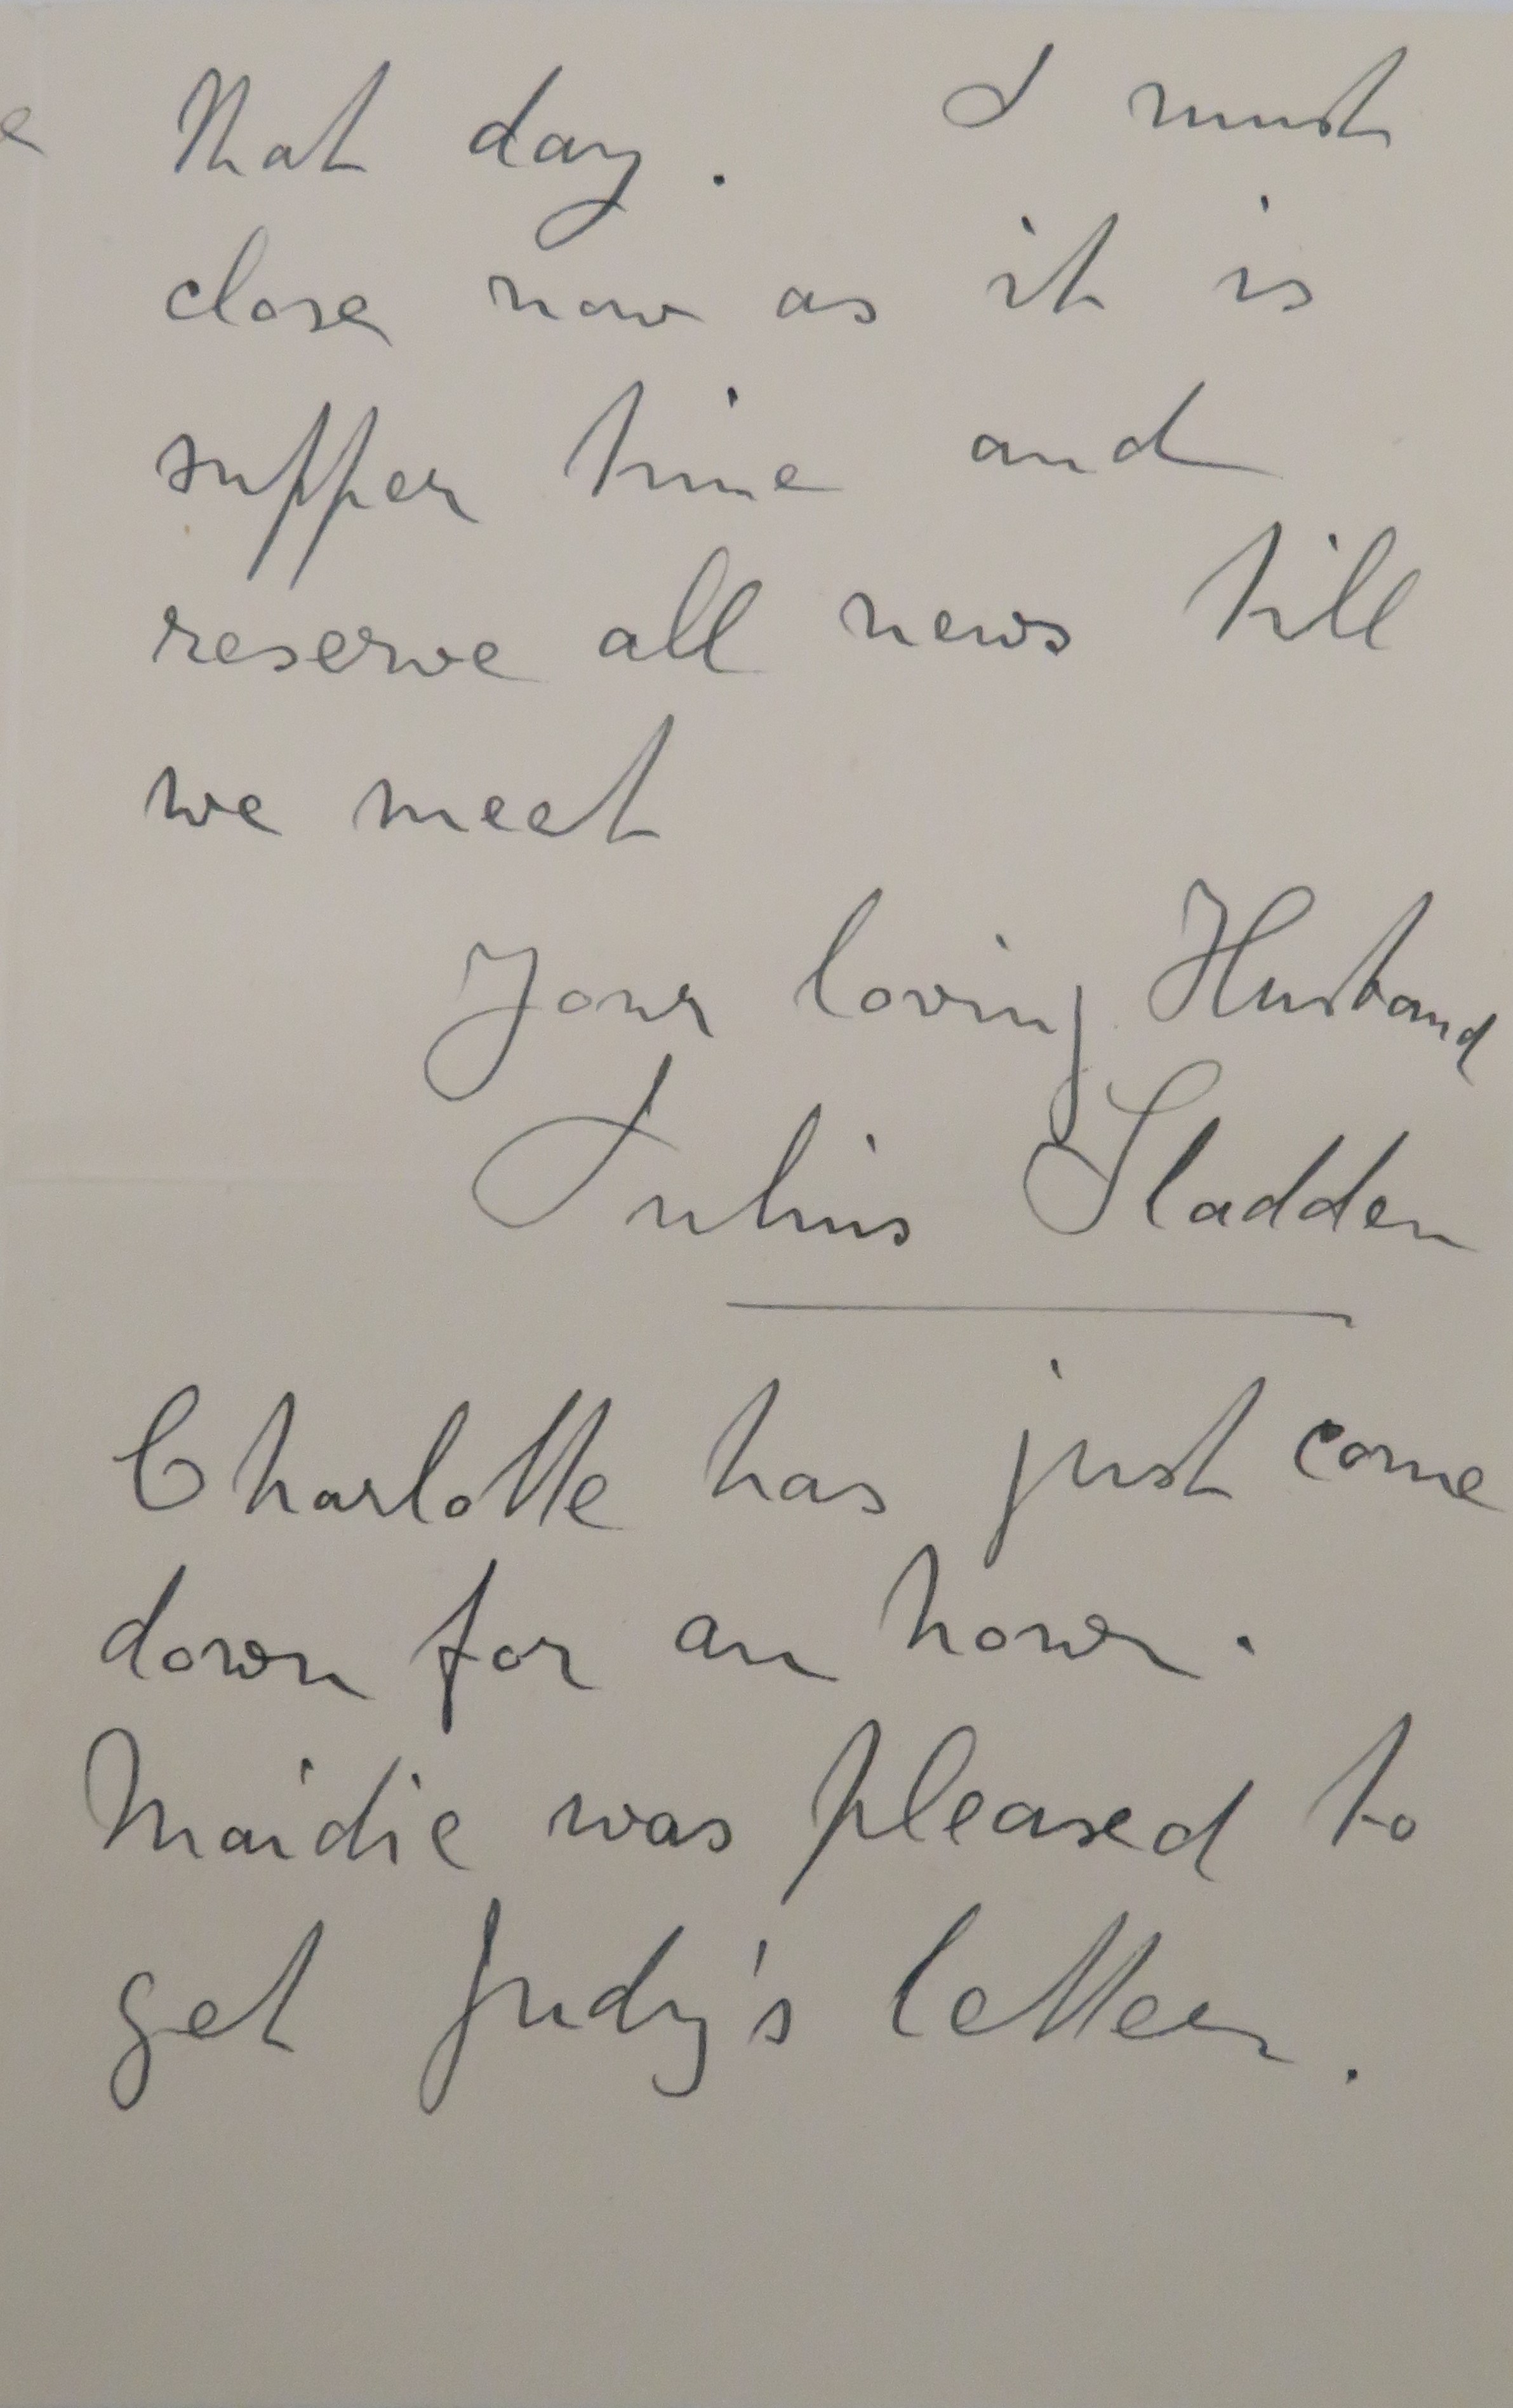 that day. I must
close now as it is
supper time and
reserve all news till
we meet
Your loving Husband
Julius Sladden
Charlotte has just come
down for an hour.
Maidie was pleased to
get Judy's letter.